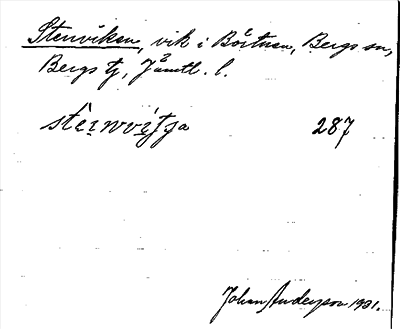 Stenviken, vik i Börtnen, Bergs sn,
Bergs tg, Jämtl. l.
287
Johan Anderson 1931.